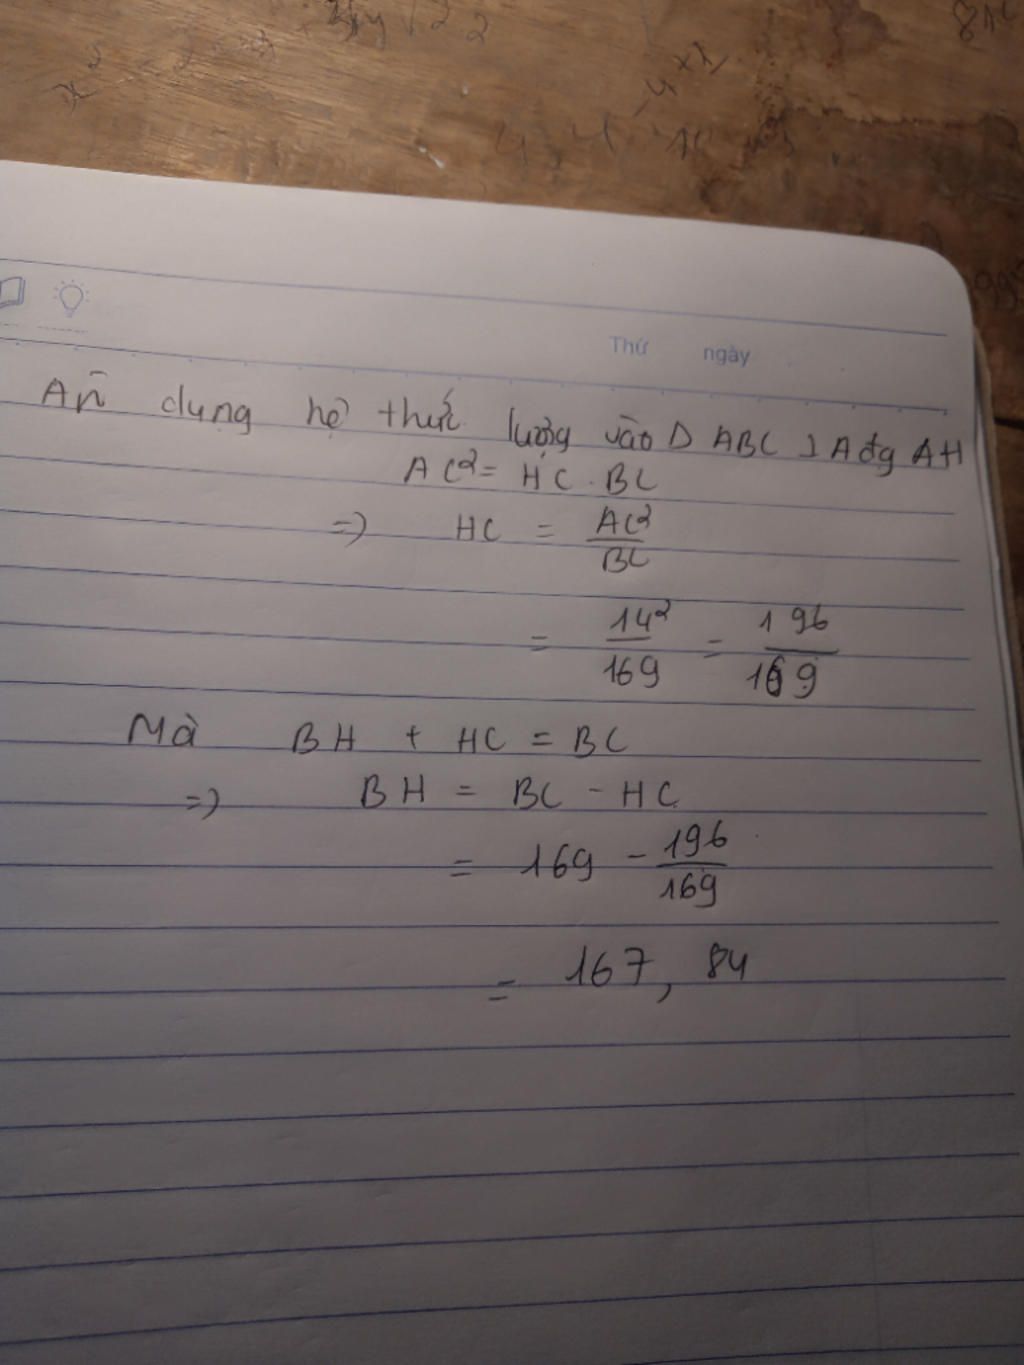 Thứ ngày
AD dụng hệ thức lượng vào Δ ABC ⊥ A đg AH
AC² = HC . BC
=> HC = AC²/BC
= 14²/169 = 196/169
Mà BH + HC = BC
=> BH = BC - HC
= 169 - 196/169
= 167, 84